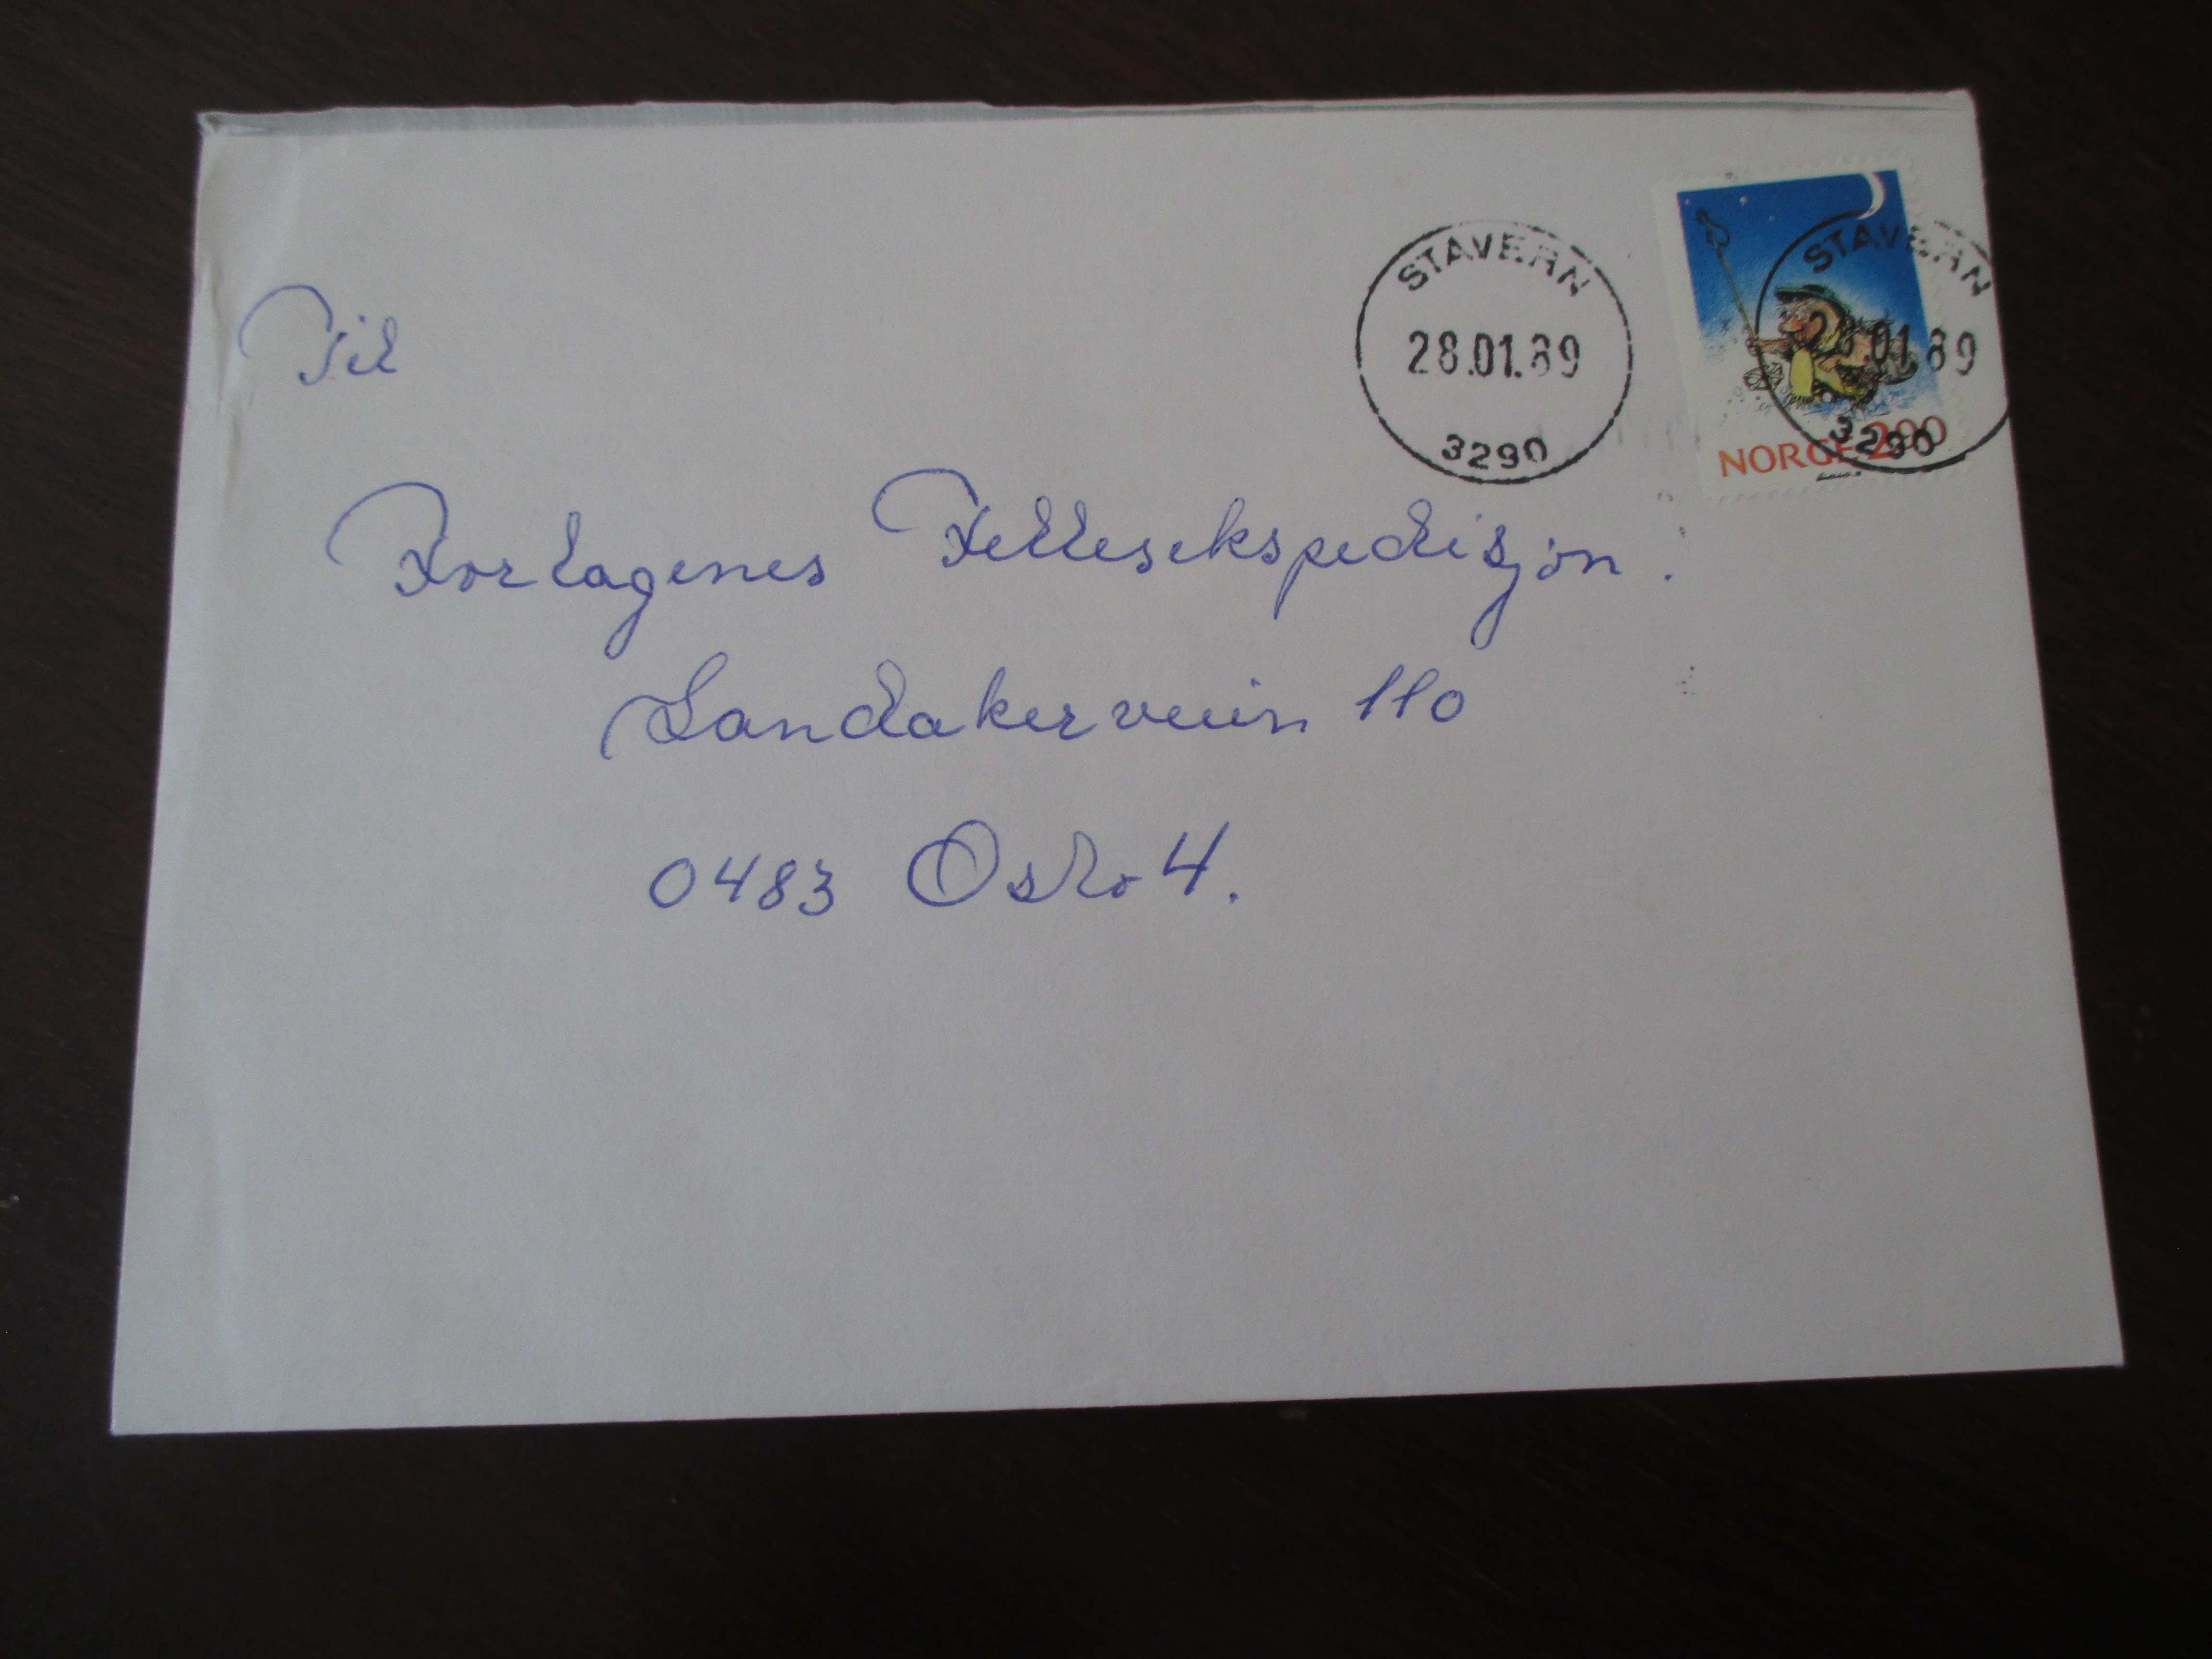 STAVERN
28.01.89
3290
STAVERN
01.89
3290
NORGE 290
Til
Forlagenes Fellesekspedisjon.
Sandakerveien 110
0483 Oslo 4.